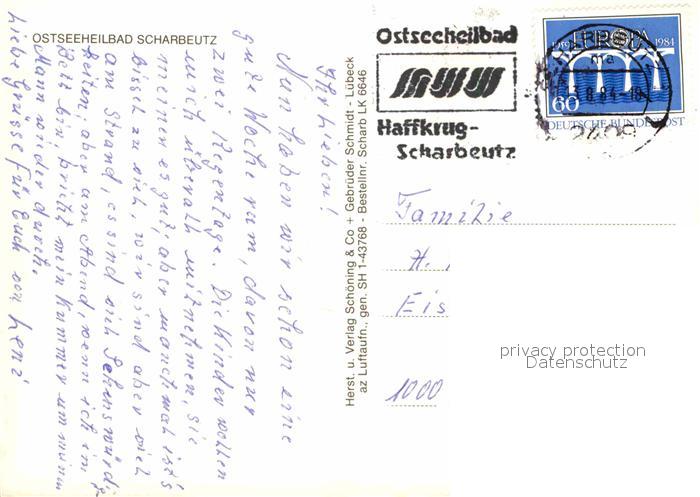 OSTSEEHEILBAD SCHARBEUTZ
Ihr Lieben!
Nun haben wir schon eine
gute Woche rum, davon nur
zwei Regentage. Die Kinder wollen
mich überall mitnehmen, sie
meinen es gut, aber manchmal ist's
bissel zu viel, wir sind aber viel
am Strand, es sind viel Sehenswürdig-
keiten, aber am Abend, wenn ich im
Bett bin, bricht mein Kummer um meinen
Mann wieder durch.
Liebe Grüsse für Euch von Leni
Herst. u. Verlag Schöning & Co + Gebrüder Schmidt - Lübeck
az Luftaufn., gen. SH 1-43768 - Bestellnr. Scharb LK 6646
Ostseeheilbad
Haffkrug-
Scharbeutz
EUROPA
1959 1984
60
DEUTSCHE BUNDESPOST
ma
13.8.84-18
2409
Familie
H.
Eis
1000
privacy protection
Datenschutz